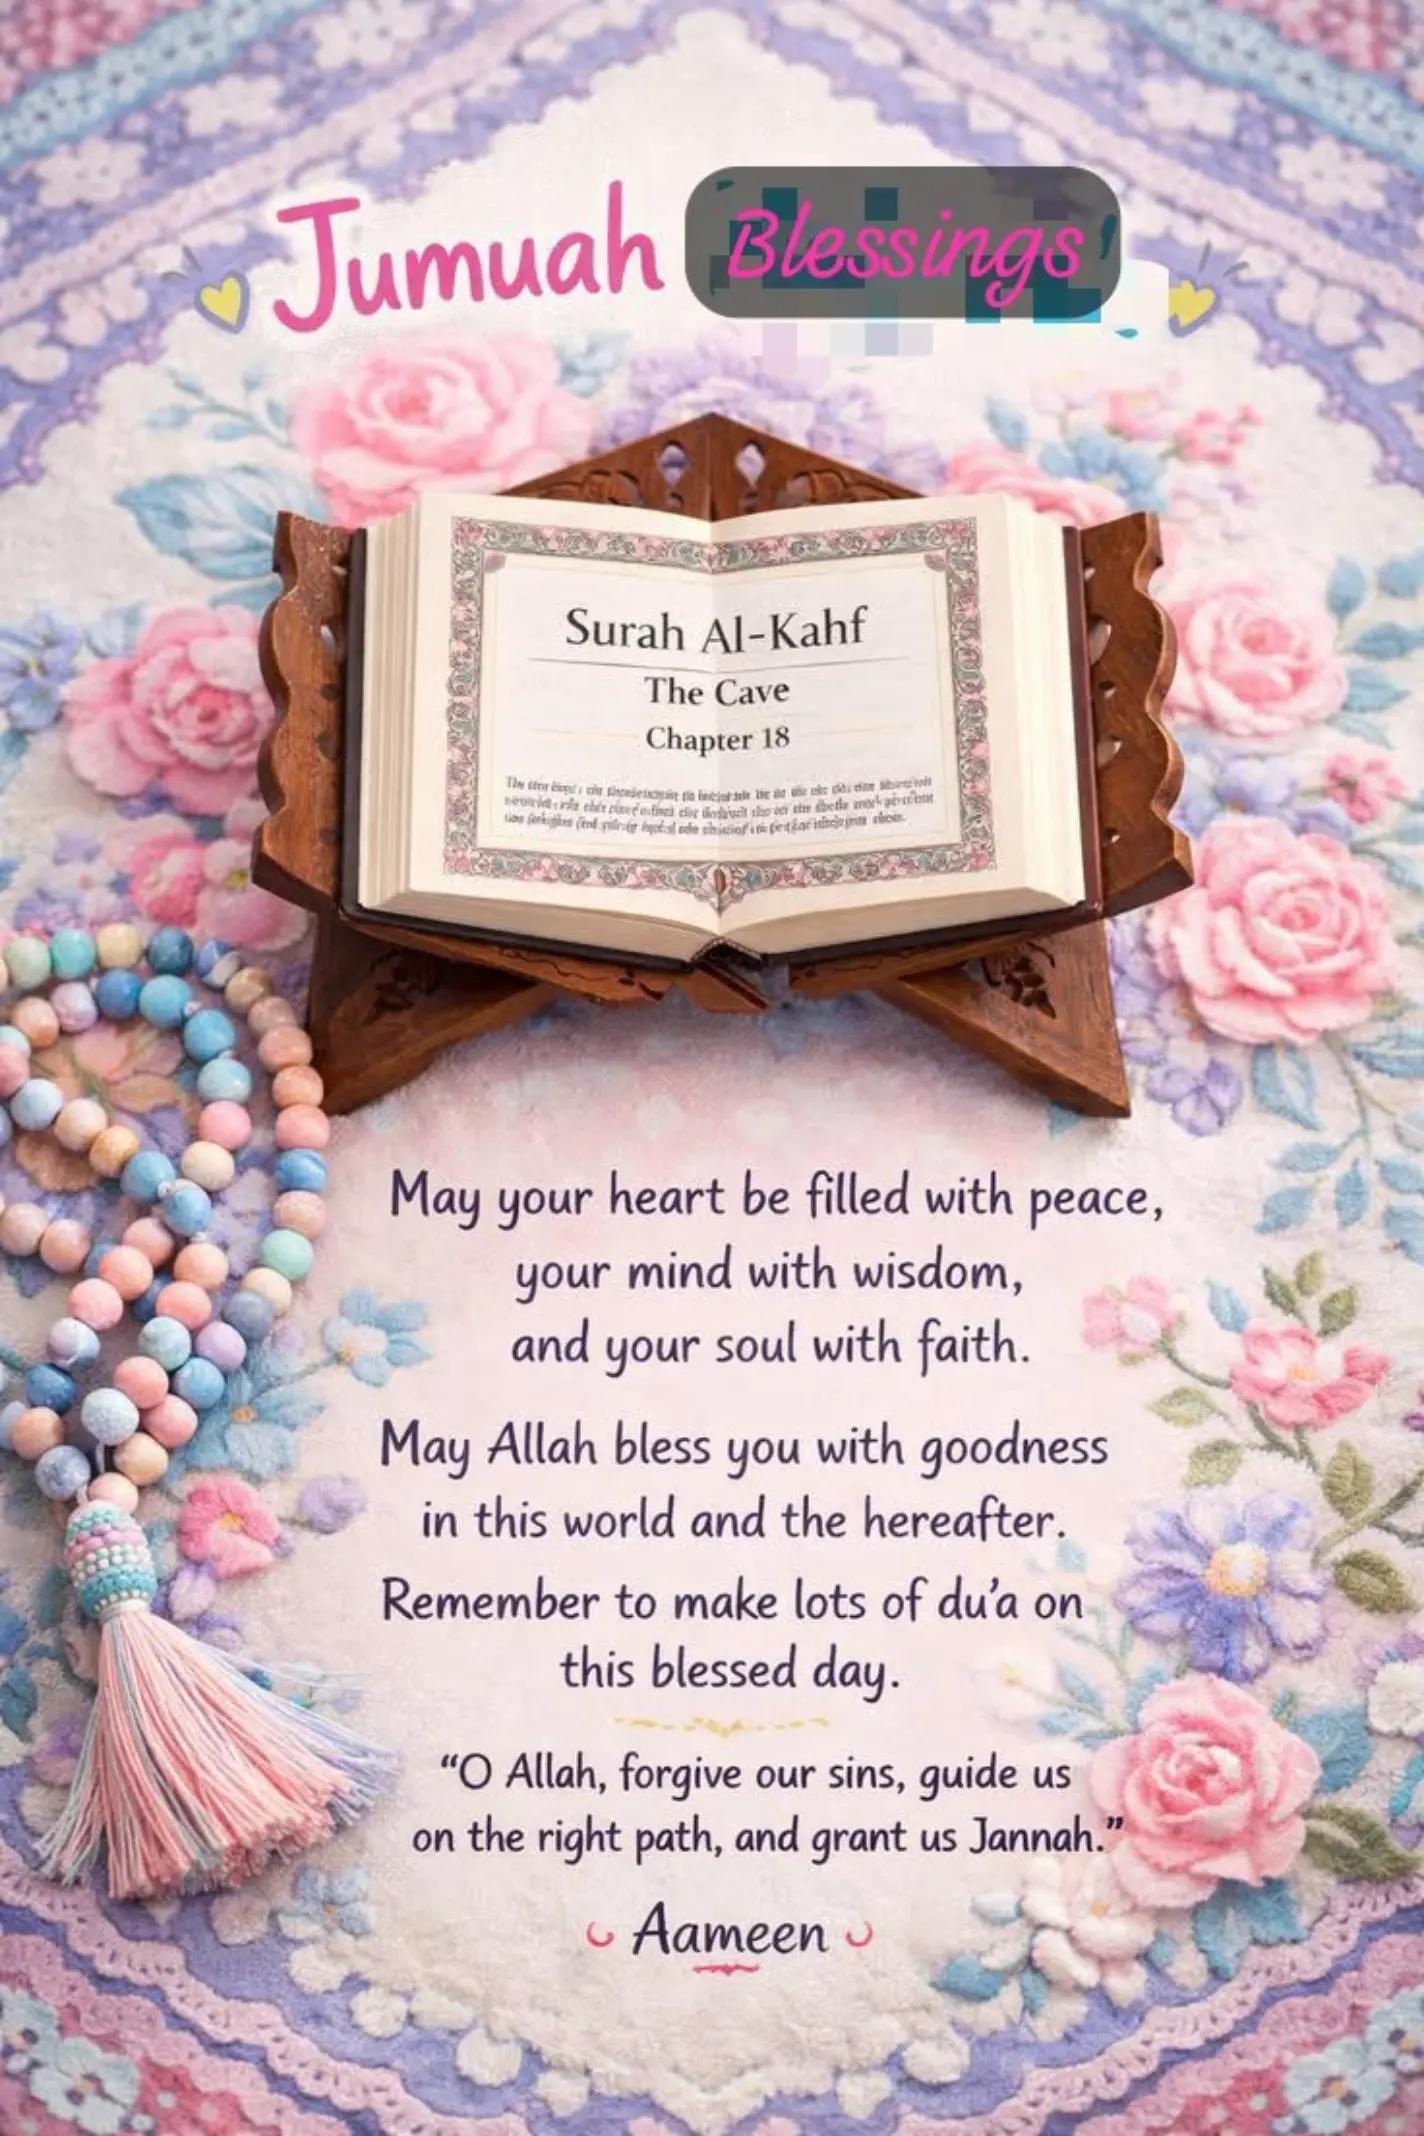 Jumuah Blessings
Surah Al-Kahf
The Cave
Chapter 18
May your heart be filled with peace,
your mind with wisdom,
and your soul with faith.
May Allah bless you with goodness
in this world and the hereafter.
Remember to make lots of du’a on
this blessed day.
“O Allah, forgive our sins, guide us
on the right path, and grant us Jannah.”
Aameen